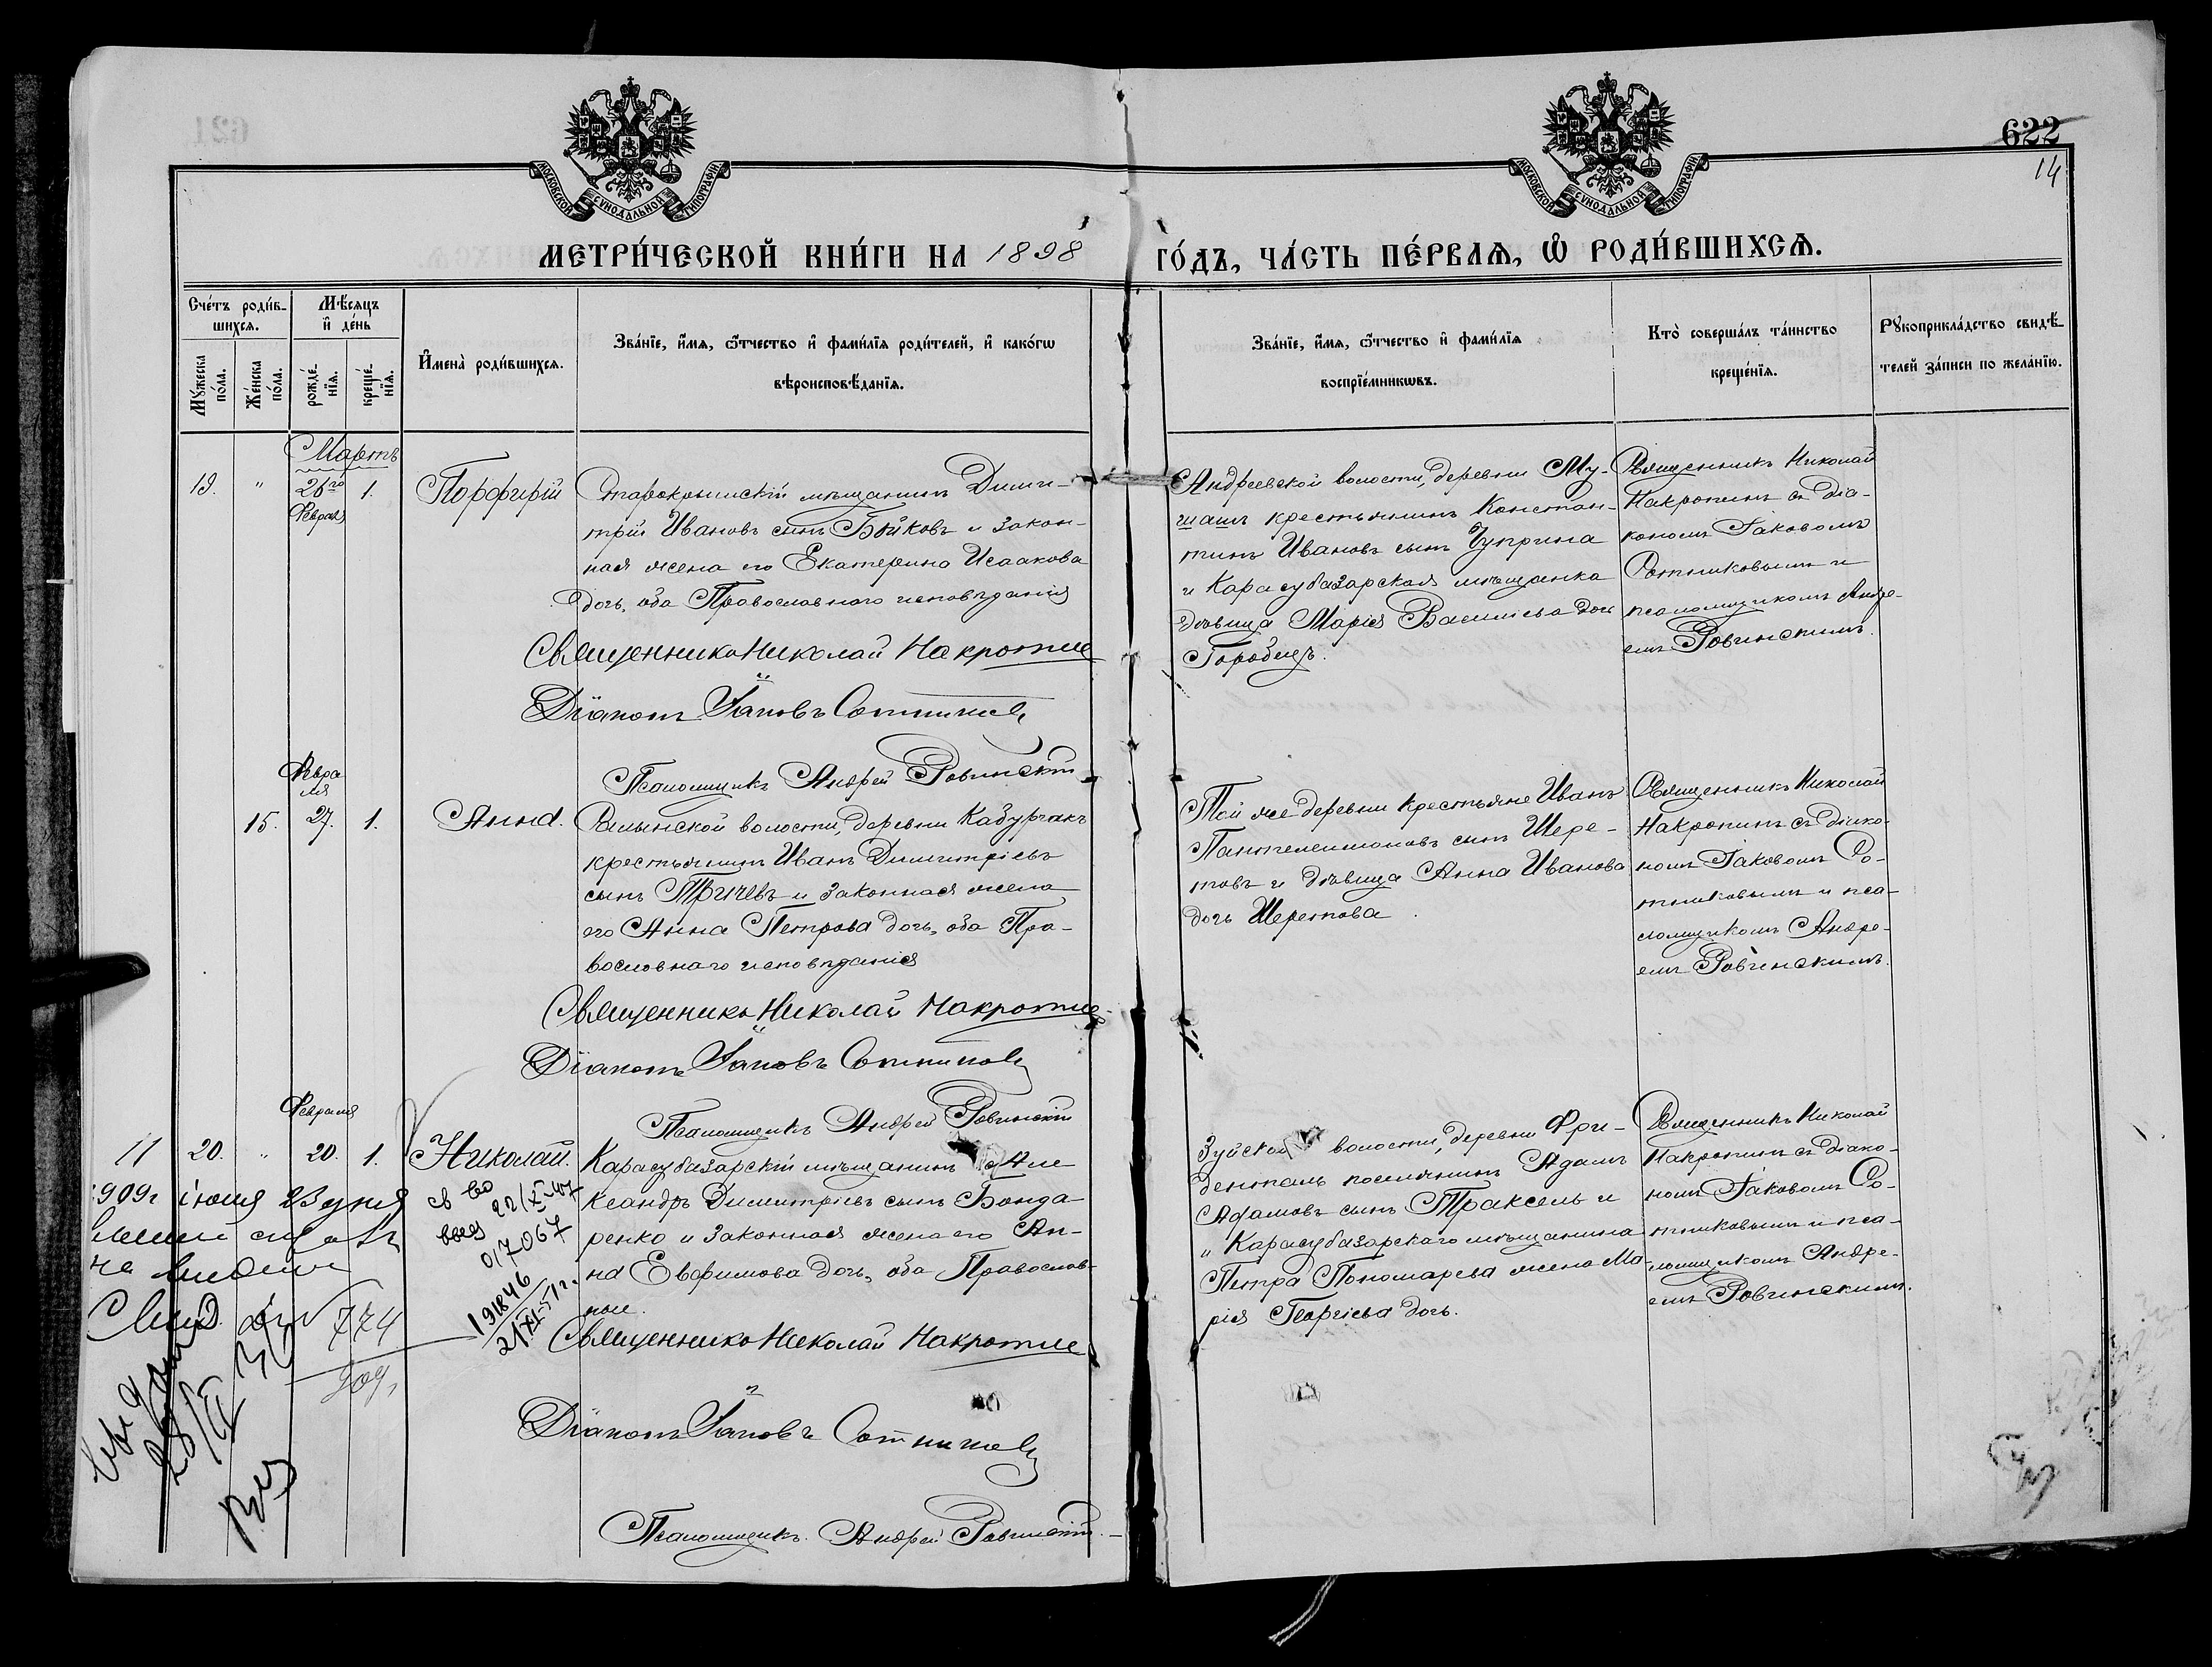 622
14
МОСКОВСКОЙ СѴНОДАЛЬНОЙ ТИПОГРАФІИ
МОСКОВСКОЙ СѴНОДАЛЬНОЙ ТИПОГРАФІИ
МЕТРИ́ЧЕСКОЙ КНИ́ГИ НА 1898 ГО́ДЪ, ЧА́СТЬ ПЕ́РВАѦ, Ѡ҆ РОДИ́ВШИХСѦ.
Сче́тъ роди́в-
шихсѧ.
Мѣ́сѧцъ
и҆ де́нь
Мꙋ́жеска
по́ла.
Же́нска
по́ла.
рожде́-
нїѧ.
креще́-
нїѧ.
И҆мена̀ роди́вшихсѧ.
Зва́нїе, и҆́мѧ, ѻ҆́тчество и҆ фами́лїѧ роди́телей, и҆ како́гѡ
вѣроисповѣ́данїѧ.
Зва́нїе, и҆́мѧ, ѻ҆́тчество и҆ фами́лїѧ
воспрїе́мникѡвъ.
Кто̀ соверша́лъ та́инство
креще́нїѧ.
Рꙋкоприкла́дство свидѣ́-
телей за́писи по жела́нїю.
Мартъ
19. " 26го 1. Порфирій
Февраля
Старокрымскій мѣщанинъ Дими-
трій Ивановъ сынъ Бойковъ и закон-
ная жена его Екатерина Исаакова
дочь, оба Православнаго исповѣданія
Священникъ Николай Накропинъ
Діаконъ Іаковъ Сотниковъ
Псаломщикъ Андрей Ровинскій
Андреевской волости, деревни Му-
шашъ крестьянинъ Констан-
тинъ Ивановъ сынъ Чуприна
и Карасубазарская мѣщанка
дѣвица Марія Василіева дочь
Городецъ.
Священникъ Николай
Накропинъ съ діа-
кономъ Іаковомъ
Сотниковымъ и
псаломщикомъ Андре-
емъ Ровинскимъ.
Февра
ля
15. 27. 1. Анна.
Салынской волости, деревни Кабурчакъ
крестьянинъ Иванъ Димитріевъ
сынъ Тричевъ и законная жена
его Анна Петрова дочь, оба Пра-
вославнаго исповѣданія
Священникъ Николай Накропинъ
Діаконъ Іаковъ Сотниковъ
Псаломщикъ Андрей Ровинскій
Той же деревни крестьяне Иванъ
Пантелеимоновъ сынъ Шере-
товъ и дѣвица Анна Иванова
дочь Шеретова.
Священникъ Николай
Накропинъ съ діако-
номъ Іаковомъ Со-
тниковымъ и пса-
ломщикомъ Андре-
емъ Ровинскимъ.
Февраля
20. " 20. 1. Николай.
Карасубазарскій мѣщанинъ Але
ксандръ Димитріевъ сынъ Бонда-
ренко и законная жена его Ан-
на Евфимова дочь, оба Православ-
ные.
Священникъ Николай Накропинъ
Діаконъ Іаковъ Сотниковъ
Псаломщикъ Андрей Ровинскій
Зуйской волости, деревни Фри-
денталь поселянинъ Адамъ
Адамовъ сынъ Траксель и
" Карасубазарскаго мѣщанина
Петра Пономарева жена Ма-
рія Георгіева дочь.
Священникъ Николай
Накропинъ съ діако-
номъ Іаковомъ Со-
тниковымъ и пса-
ломщикомъ Андре-
емъ Ровинскимъ.
11
1909г іюня
774
909
св во
017067
191846
21/XI-51г.